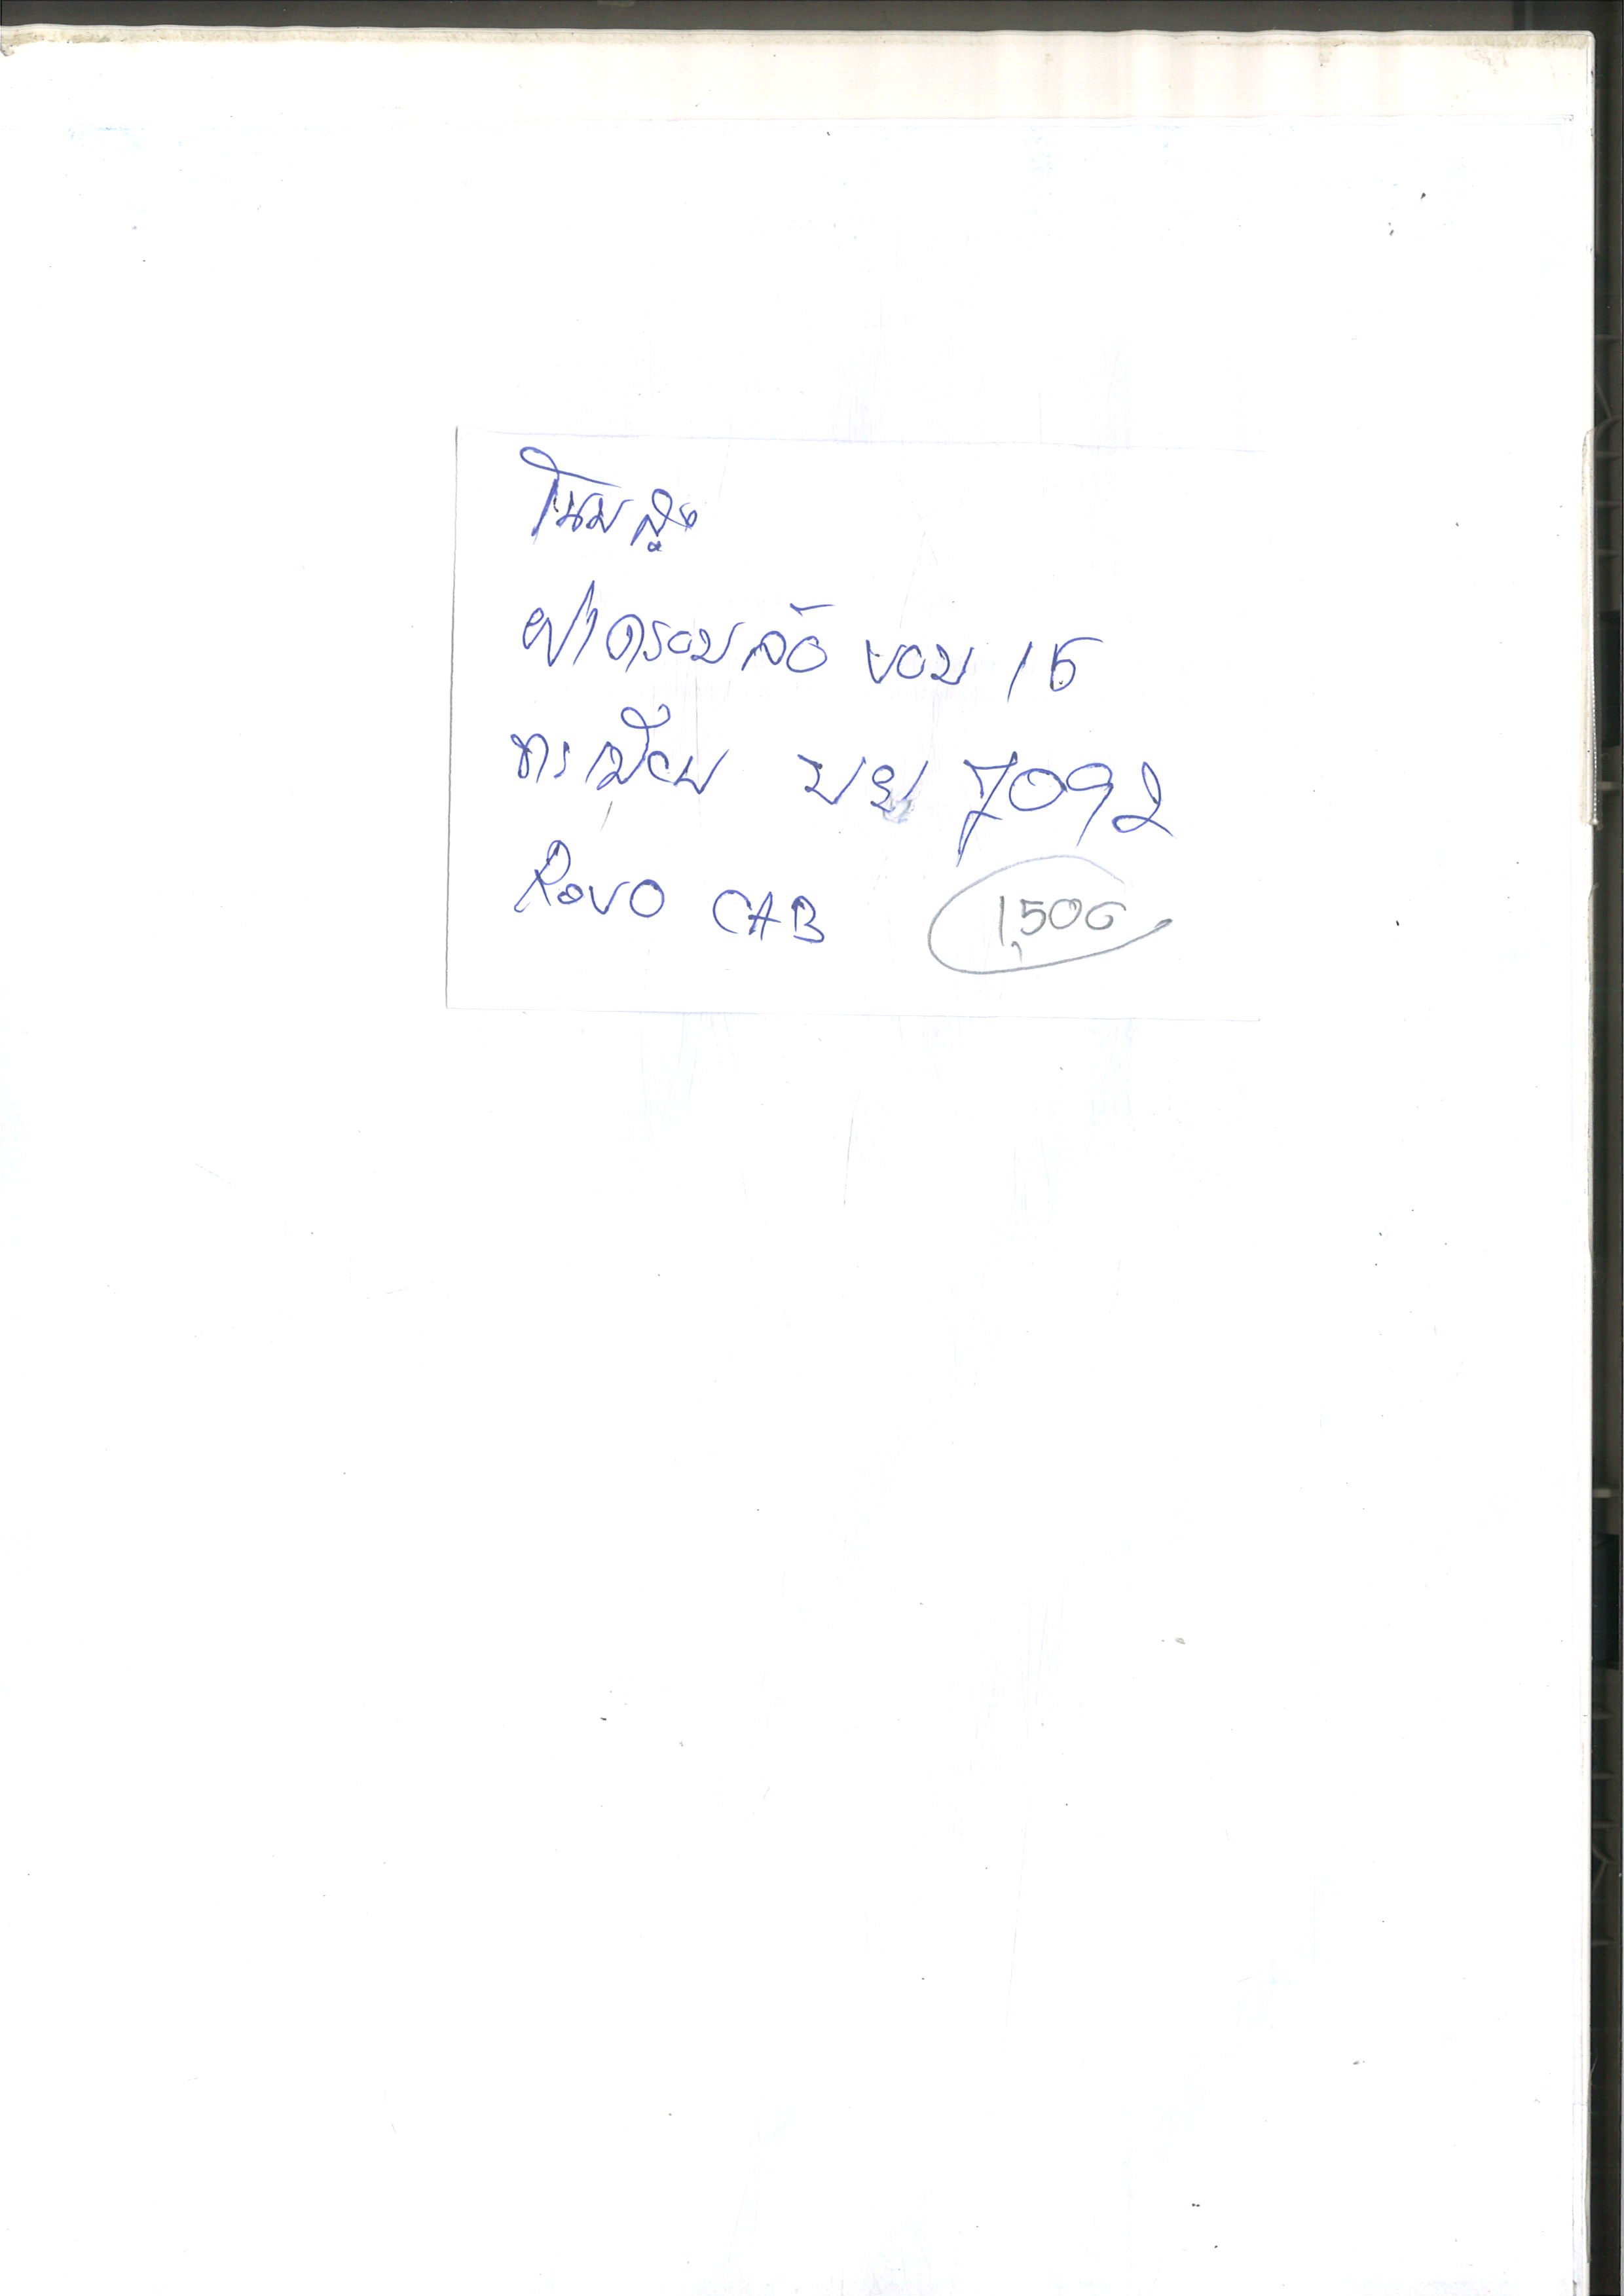 โนนสูง
ฝาครอบล้อ ขอบ 15
ทะเบียน บย 7092
Revo CAB 1,500